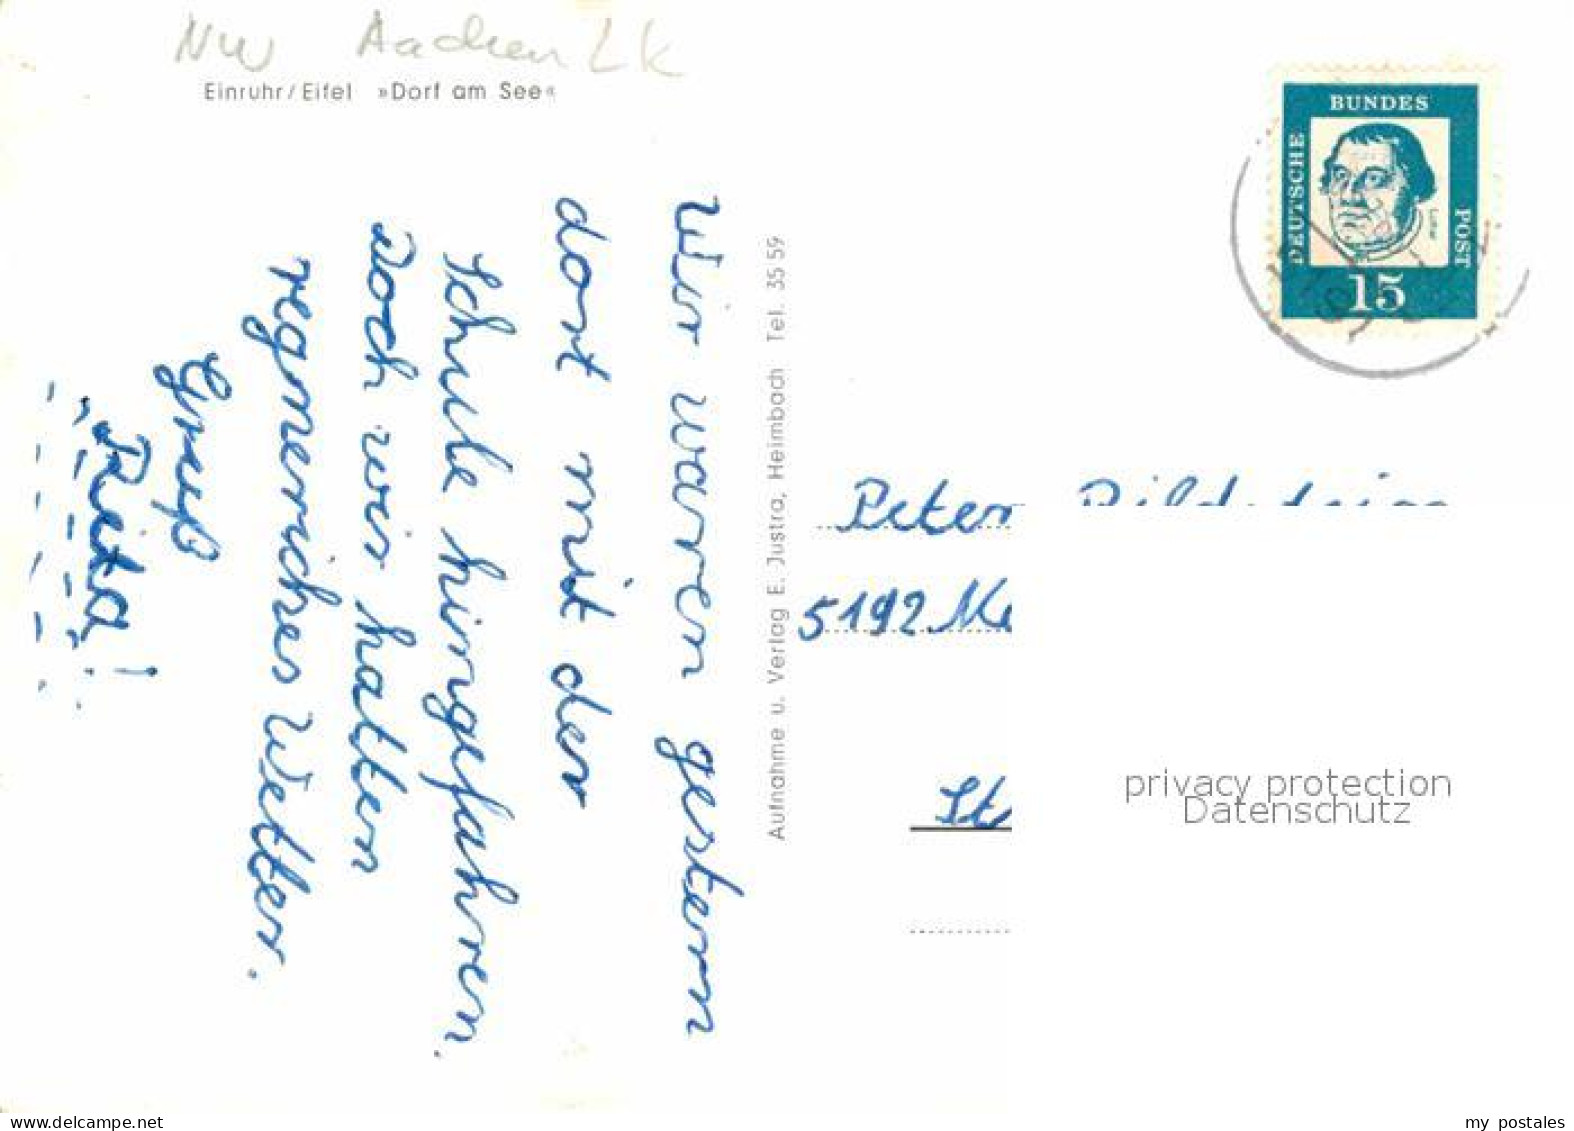 NW Aachen Lk
Einruhr/Eifel »Dorf am See«
BUNDES
DEUTSCHE
POST
Luther
15
Wir waren gestern
dort mit der
Schule hingefahren.
Doch wir hatten
regnerisches Wetter.
Gruß
Rita!
Aufnahme u. Verlag E. Justra, Heimbach Tel. 35 59
Peter
5192
privacy protection
Datenschutz
my postales